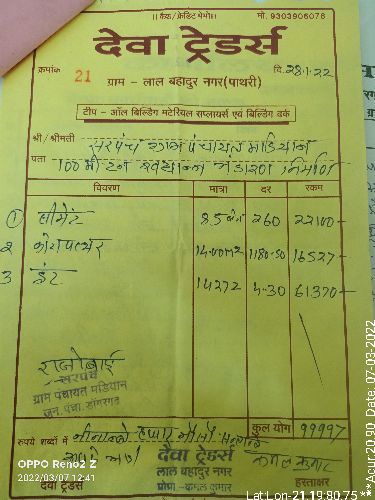 ।। कैश/क्रेडिट मेमो।। मो. 9303906076
देवा ट्रेडर्स
क्रमांक 21 दि. 28.1.22
ग्राम - लाल बहादुर नगर(पाथरी)
टीप - ऑल बिल्डिंग मटेरियल सप्लायर्स एवं बिल्डिंग वर्क
श्री/श्रीमती सरपंच ग्राम पंचायत माडियान
पता 100 मी टन खाद्यान्न भंडारण निर्माण
विवरण मात्रा दर रकम
① सीमेंट 85 260 22100-
2 14.00 m2 1180-50 16527-
3 ईंट 14272 4-30 61370-
राजोबाई
सरपंच
ग्राम पंचायत मडियान
जन. पंचा. डोंगरगढ़
कुल योग 99997
रुपये शब्दों में हजार नौ सौ
देवा ट्रेडर्स
लाल बहादुर नगर
प्रोप.- कमल कुमार
देवा ट्रेडर्स
हस्ताक्षर
OPPO Reno2 Z
2022/03/07 12:41
Lat Lon-21.19:80.75**
**Acur:20.90, Date: 07-03-2022